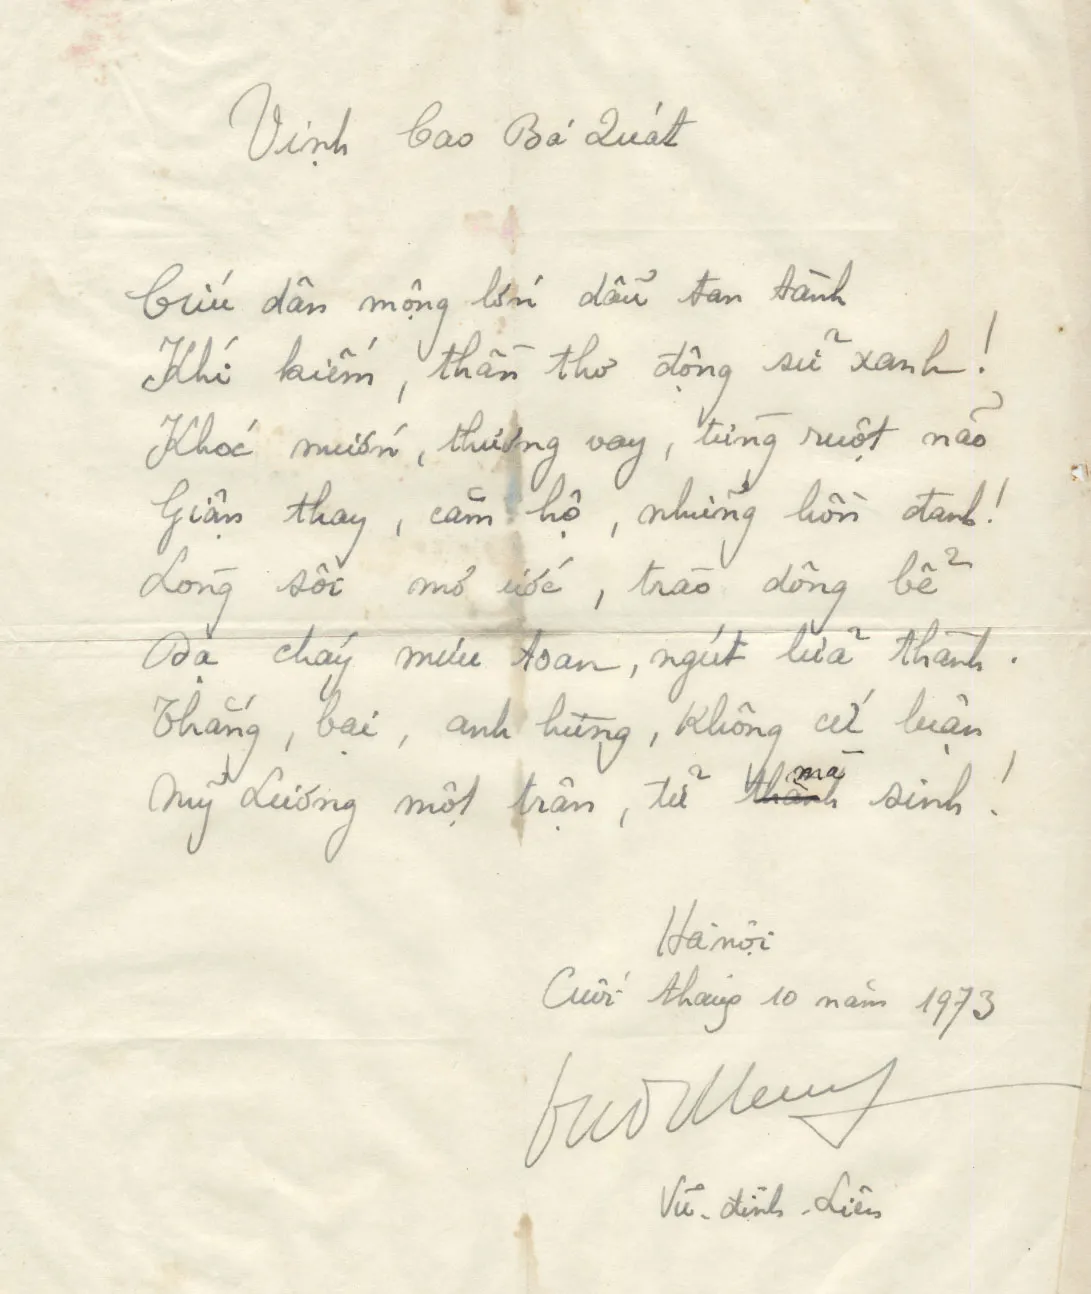 Vịnh Cao Bá Quát
Cứu dân mộng lớn dẫu tan tành
Khí kiếm, thần thơ động sử xanh!
Khóc mướn, thương vay, từng ruột não
Giận thay, căm hộ, những hồn đanh!
Lòng sôi mơ ước, trào dông bể
Dạ cháy mưu toan, ngút lửa thành.
Thắng, bại, anh hùng, không cứ luận
Mỹ Lương một trận, tử mà sinh!
Hà nội
Cuối tháng 10 năm 1973
Vũ-đình-Liên